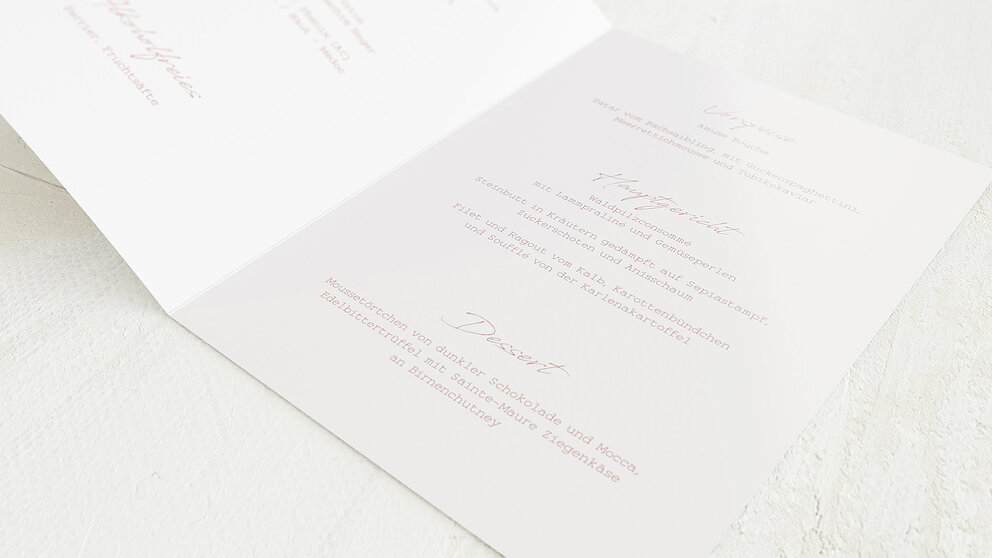 Alkoholfreies
Perrier, Fruchtsäfte
Vorspeise
Amuse Bouche
Tatar vom Bachsaibling, mit Gurkenspaghettini,
Meerrettichmousse und Tobikokaviar
Hauptgericht
Waldpilzconsommé
mit Lammpraliné und Gemüseperlen
Steinbutt in Kräutern gedämpft auf Sepiastampf,
Zuckerschoten und Anisschaum
Filet und Ragout vom Kalb, Karottenbündchen
und Soufflé von der Karlenakartoffel
Dessert
Moussetörtchen von dunkler Schokolade und Mocca,
Edelbittertrüffel mit Sainte-Maure Ziegenkäse
an Birnenchutney